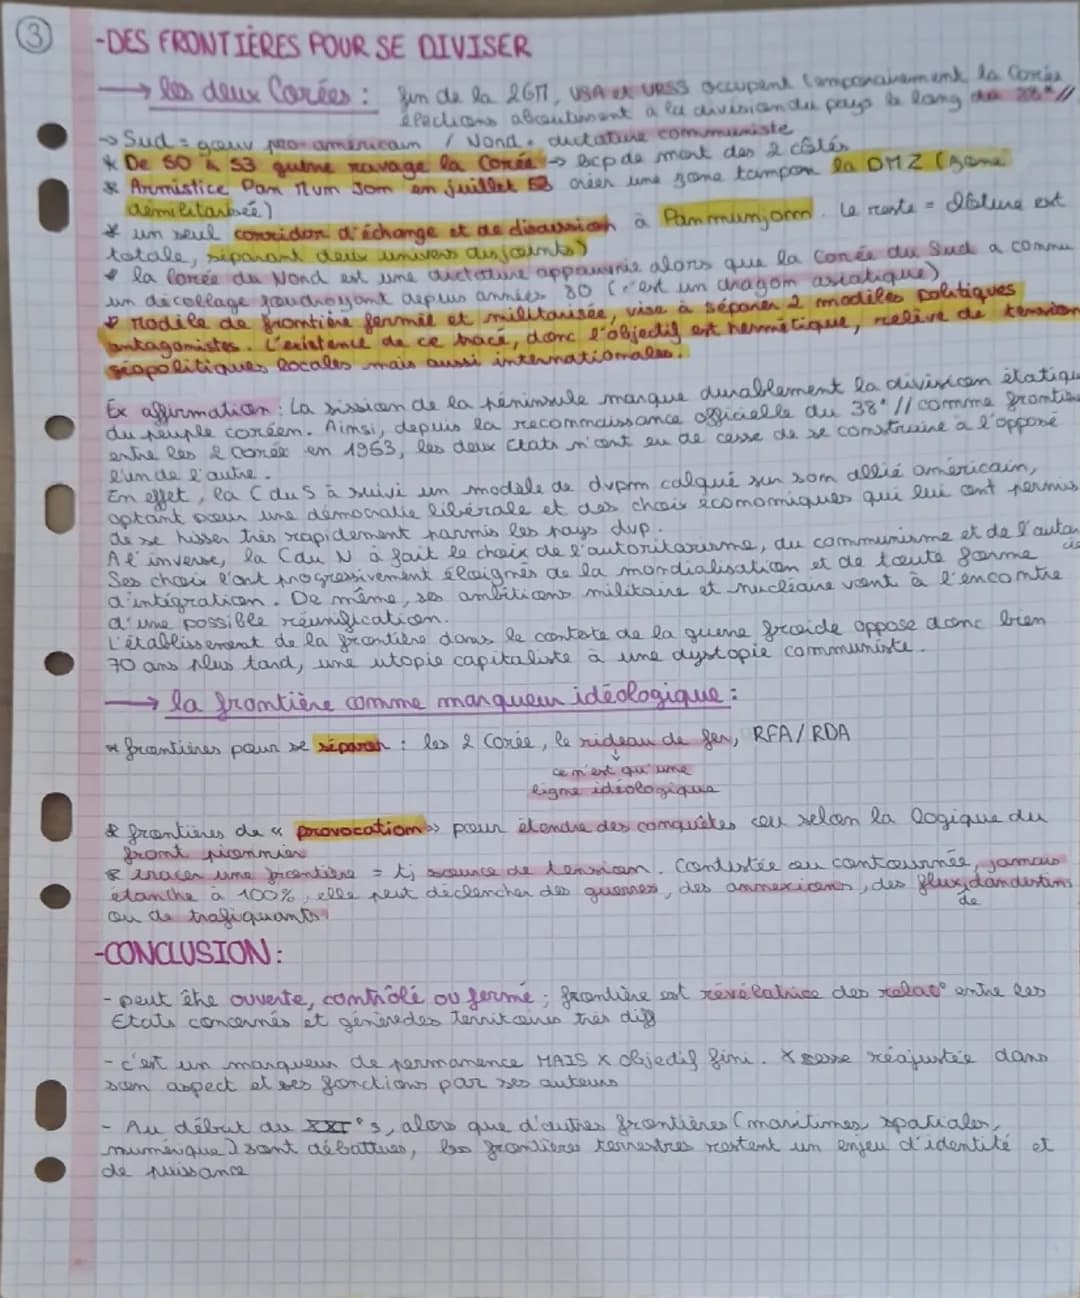 3
-DES FRONTIÈRES POUR SE DIVISER
→ les deux Corées : fin de la 2GM, USA et URSS occupent temporairement la Corée,
élections aboutissent à la division du pays le long du 38° //
→ Sud = gouv pro-américain / Nord = dictature communiste
* De 50 à 53 guerre ravage la Corée → bcp de mort des 2 côtés
* Armistice Pan Mum Jom en juillet 53 créer une zone tampon la DMZ (zone
démilitarisée)
* un seul corridor d'échange et de discussion à Panmunjom. Le reste = clôture est
totale, séparant deux univers disjoints)
* la Corée du Nord est une dictature appauvrie alors que la Corée du Sud a connu
un décollage foudroyant depuis années 80 (c'est un dragon asiatique)
* Modèle de frontière fermée et militarisée, vise à séparer 2 modèles politiques
antagonistes. L'existence de ce tracé, donc l'objectif est hermétique, relève de tension
géopolitiques locales mais aussi internationales.
Ex affirmation : La scission de la péninsule marque durablement la division étatique
du peuple coréen. Ainsi, depuis la reconnaissance officielle du 38° // comme frontière
entre les 2 Corée en 1953, les deux Etats n'ont eu de cesse de se construire à l'opposé
l'un de l'autre.
En effet, la C du S à suivi un modèle de dvpm calqué sur son allié américain,
optant pour une démocratie libérale et des choix économiques qui lui ont permis
de se hisser très rapidement parmis les pays dvp.
A l'inverse, la C du N à fait le choix de l'autoritarisme, du communisme et de l'auta
cie
Ses choix l'ont progressivement éloignés de la mondialisation et de toute forme
d'intégration. De même, ses ambitions militaire et nucléaire vont à l'encontre
d'une possible réunification.
L'établissement de la frontière dans le contexte de la guerre froide oppose donc bien
70 ans plus tard, une utopie capitaliste à une dystopie communiste.
→ la frontière comme marqueur idéologique :
* frontières pour se séparer : les 2 Corée, le rideau de fer, RFA/RDA
ce n'est qu'une
ligne idéologique
* frontières de « provocation » pour étendre des conquêtes ou selon la logique du
front pionnier
* tracer une frontière = tj source de tension. Contestée ou contournée, jamais
étanche à 100%, elle peut déclencher des guerres, des annexions, des flux, clandestins
de
ou de trafiquants
-CONCLUSION :
- peut être ouverte, contrôlé ou fermé ; frontière est révélatrice des relat° entre les
Etats concernés et génère des territoires très diff
- c'est un marqueur de permanence MAIS X objectif fini. X cesse réajustée dans
son aspect et ses fonctions par ses auteurs
- Au début du XXI°s, alors que d'autres frontières (maritimes, spatiales,
numérique) sont débattues, les frontières terrestres restent un enjeu d'identité et
de puissance